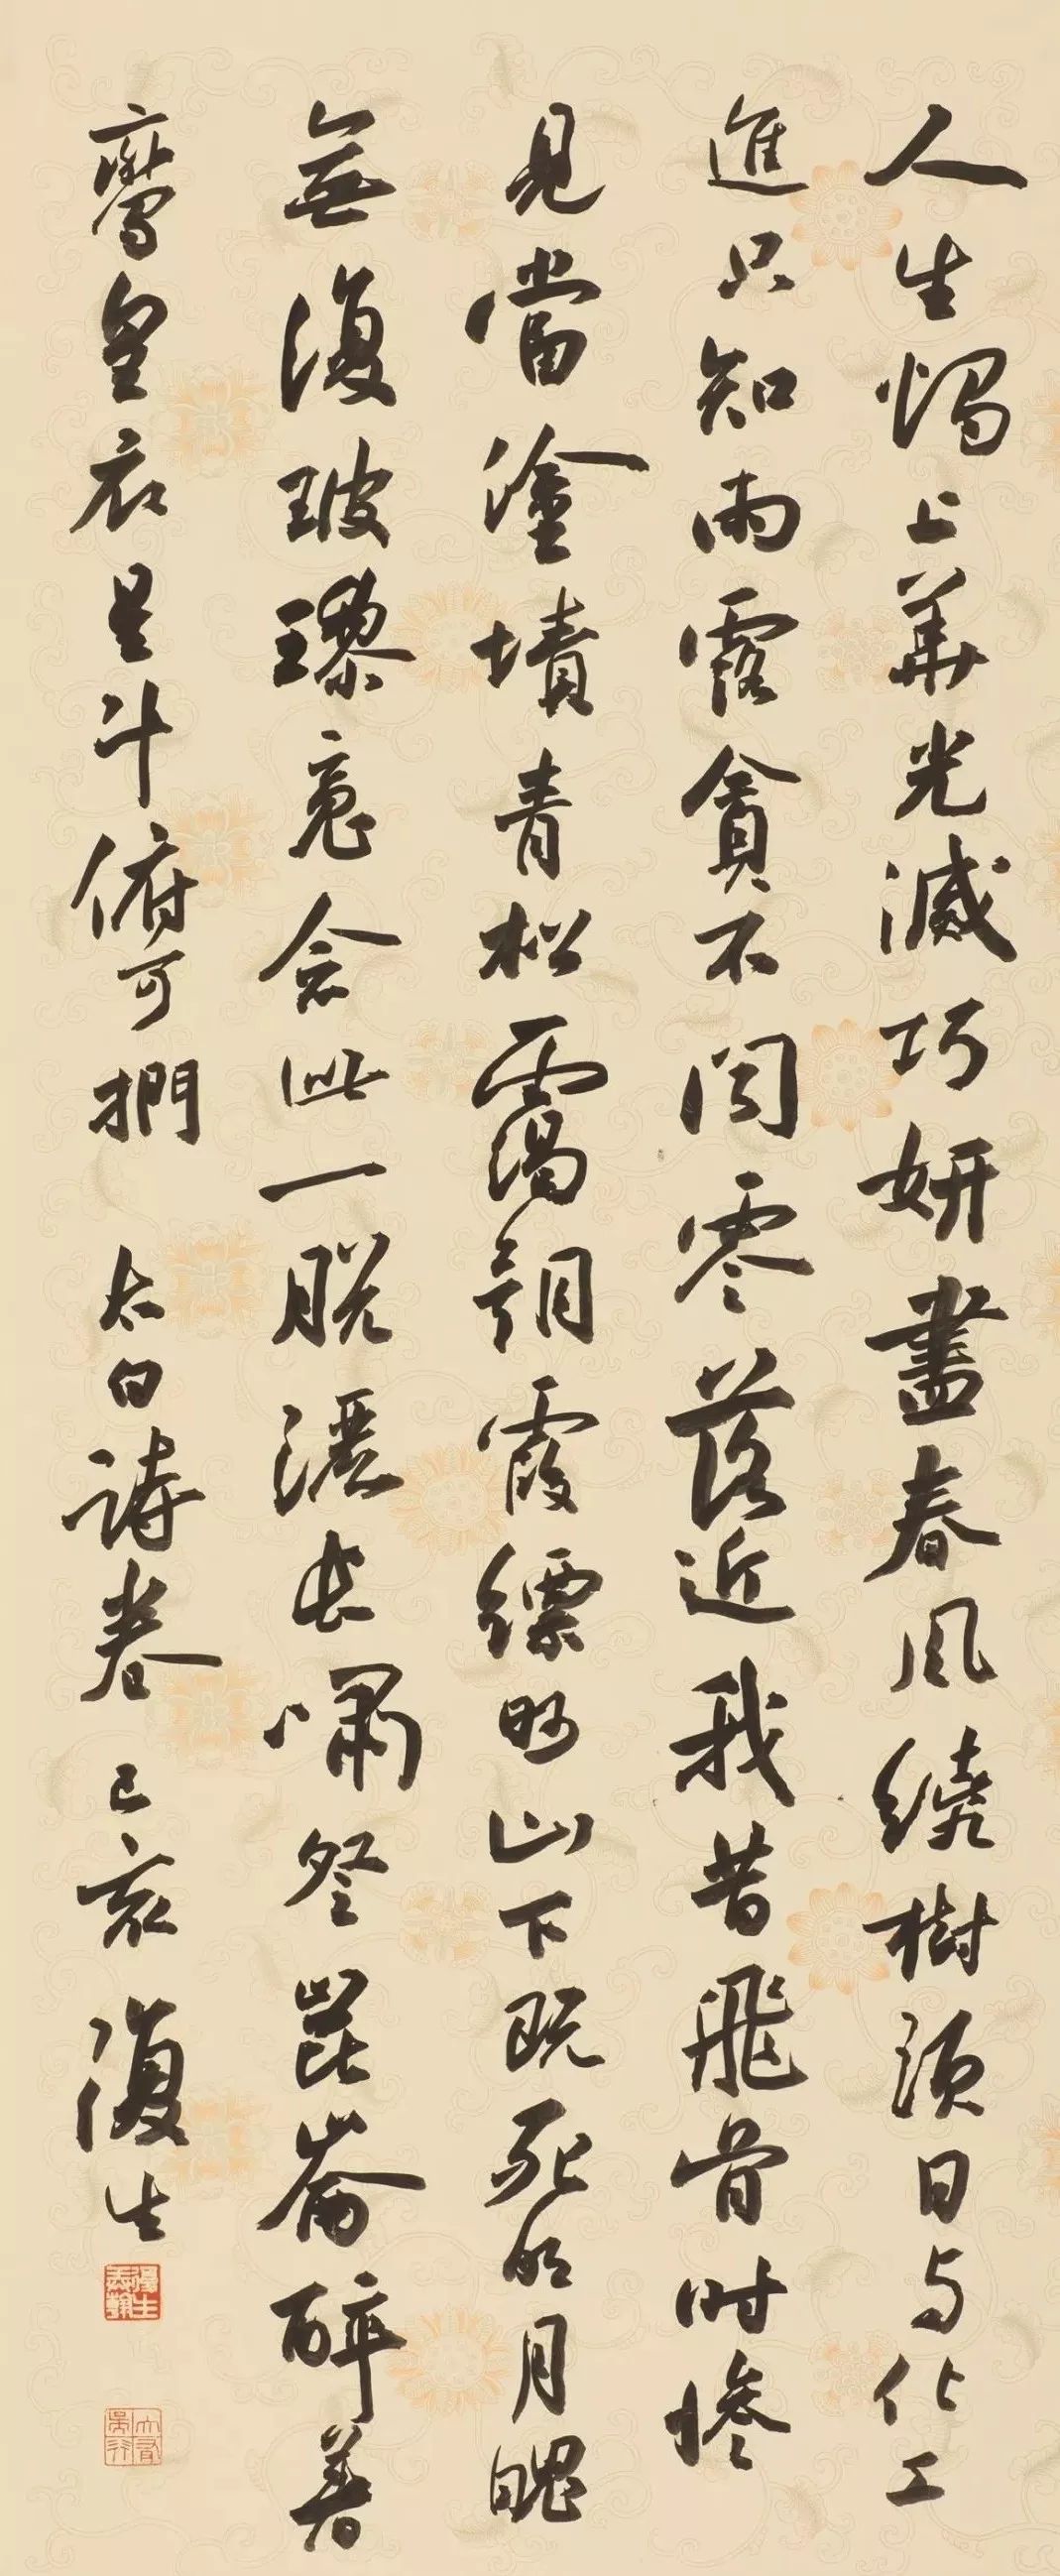 人生燭上華光滅巧妍盡春風繞樹頭日与化工
進只知雨露貪不聞零落近我昔飛骨时慘
見當塗墳青松靄朝霞縹眇山下既死明月魄
無復玻瓈魂念此一脫灑長嘯登崑崙醉著
鸞皇衣星斗俯可捫 太白詩卷 己亥 復生